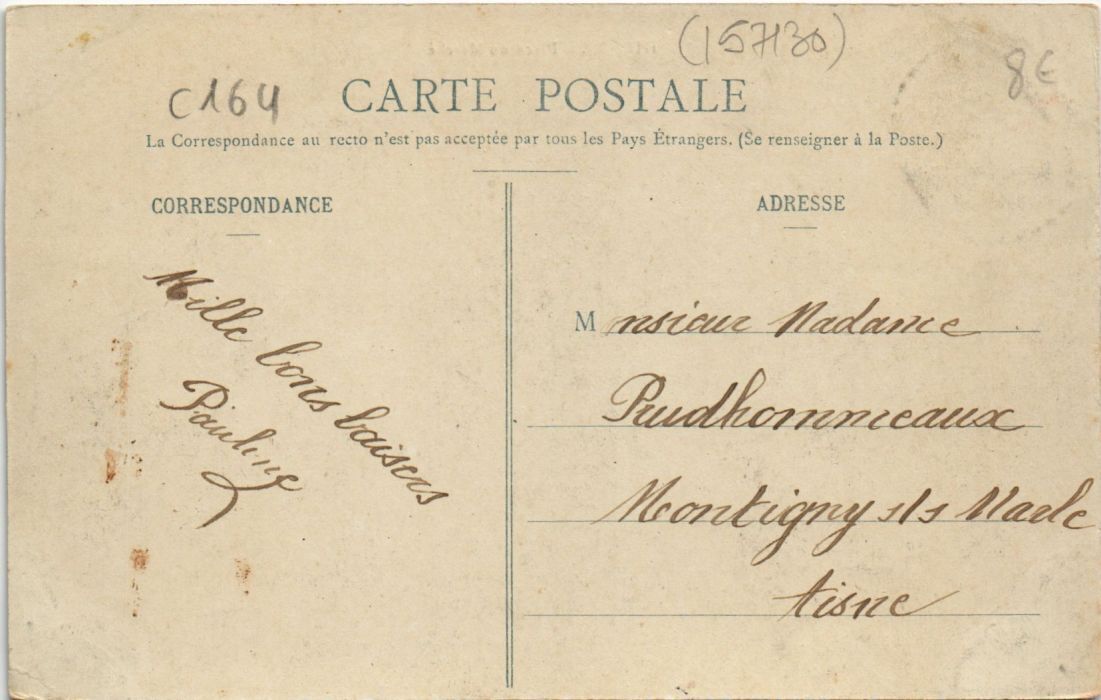 (157130)
8€
C164
CARTE POSTALE
La Correspondance au recto n'est pas acceptée par tous les Pays Étrangers. (Se renseigner à la Poste.)
CORRESPONDANCE
Mille bons baisers
Pauline
ADRESSE
M nsieur Madame
Prudhommeaux
Montigny s/s Marle
Aisne